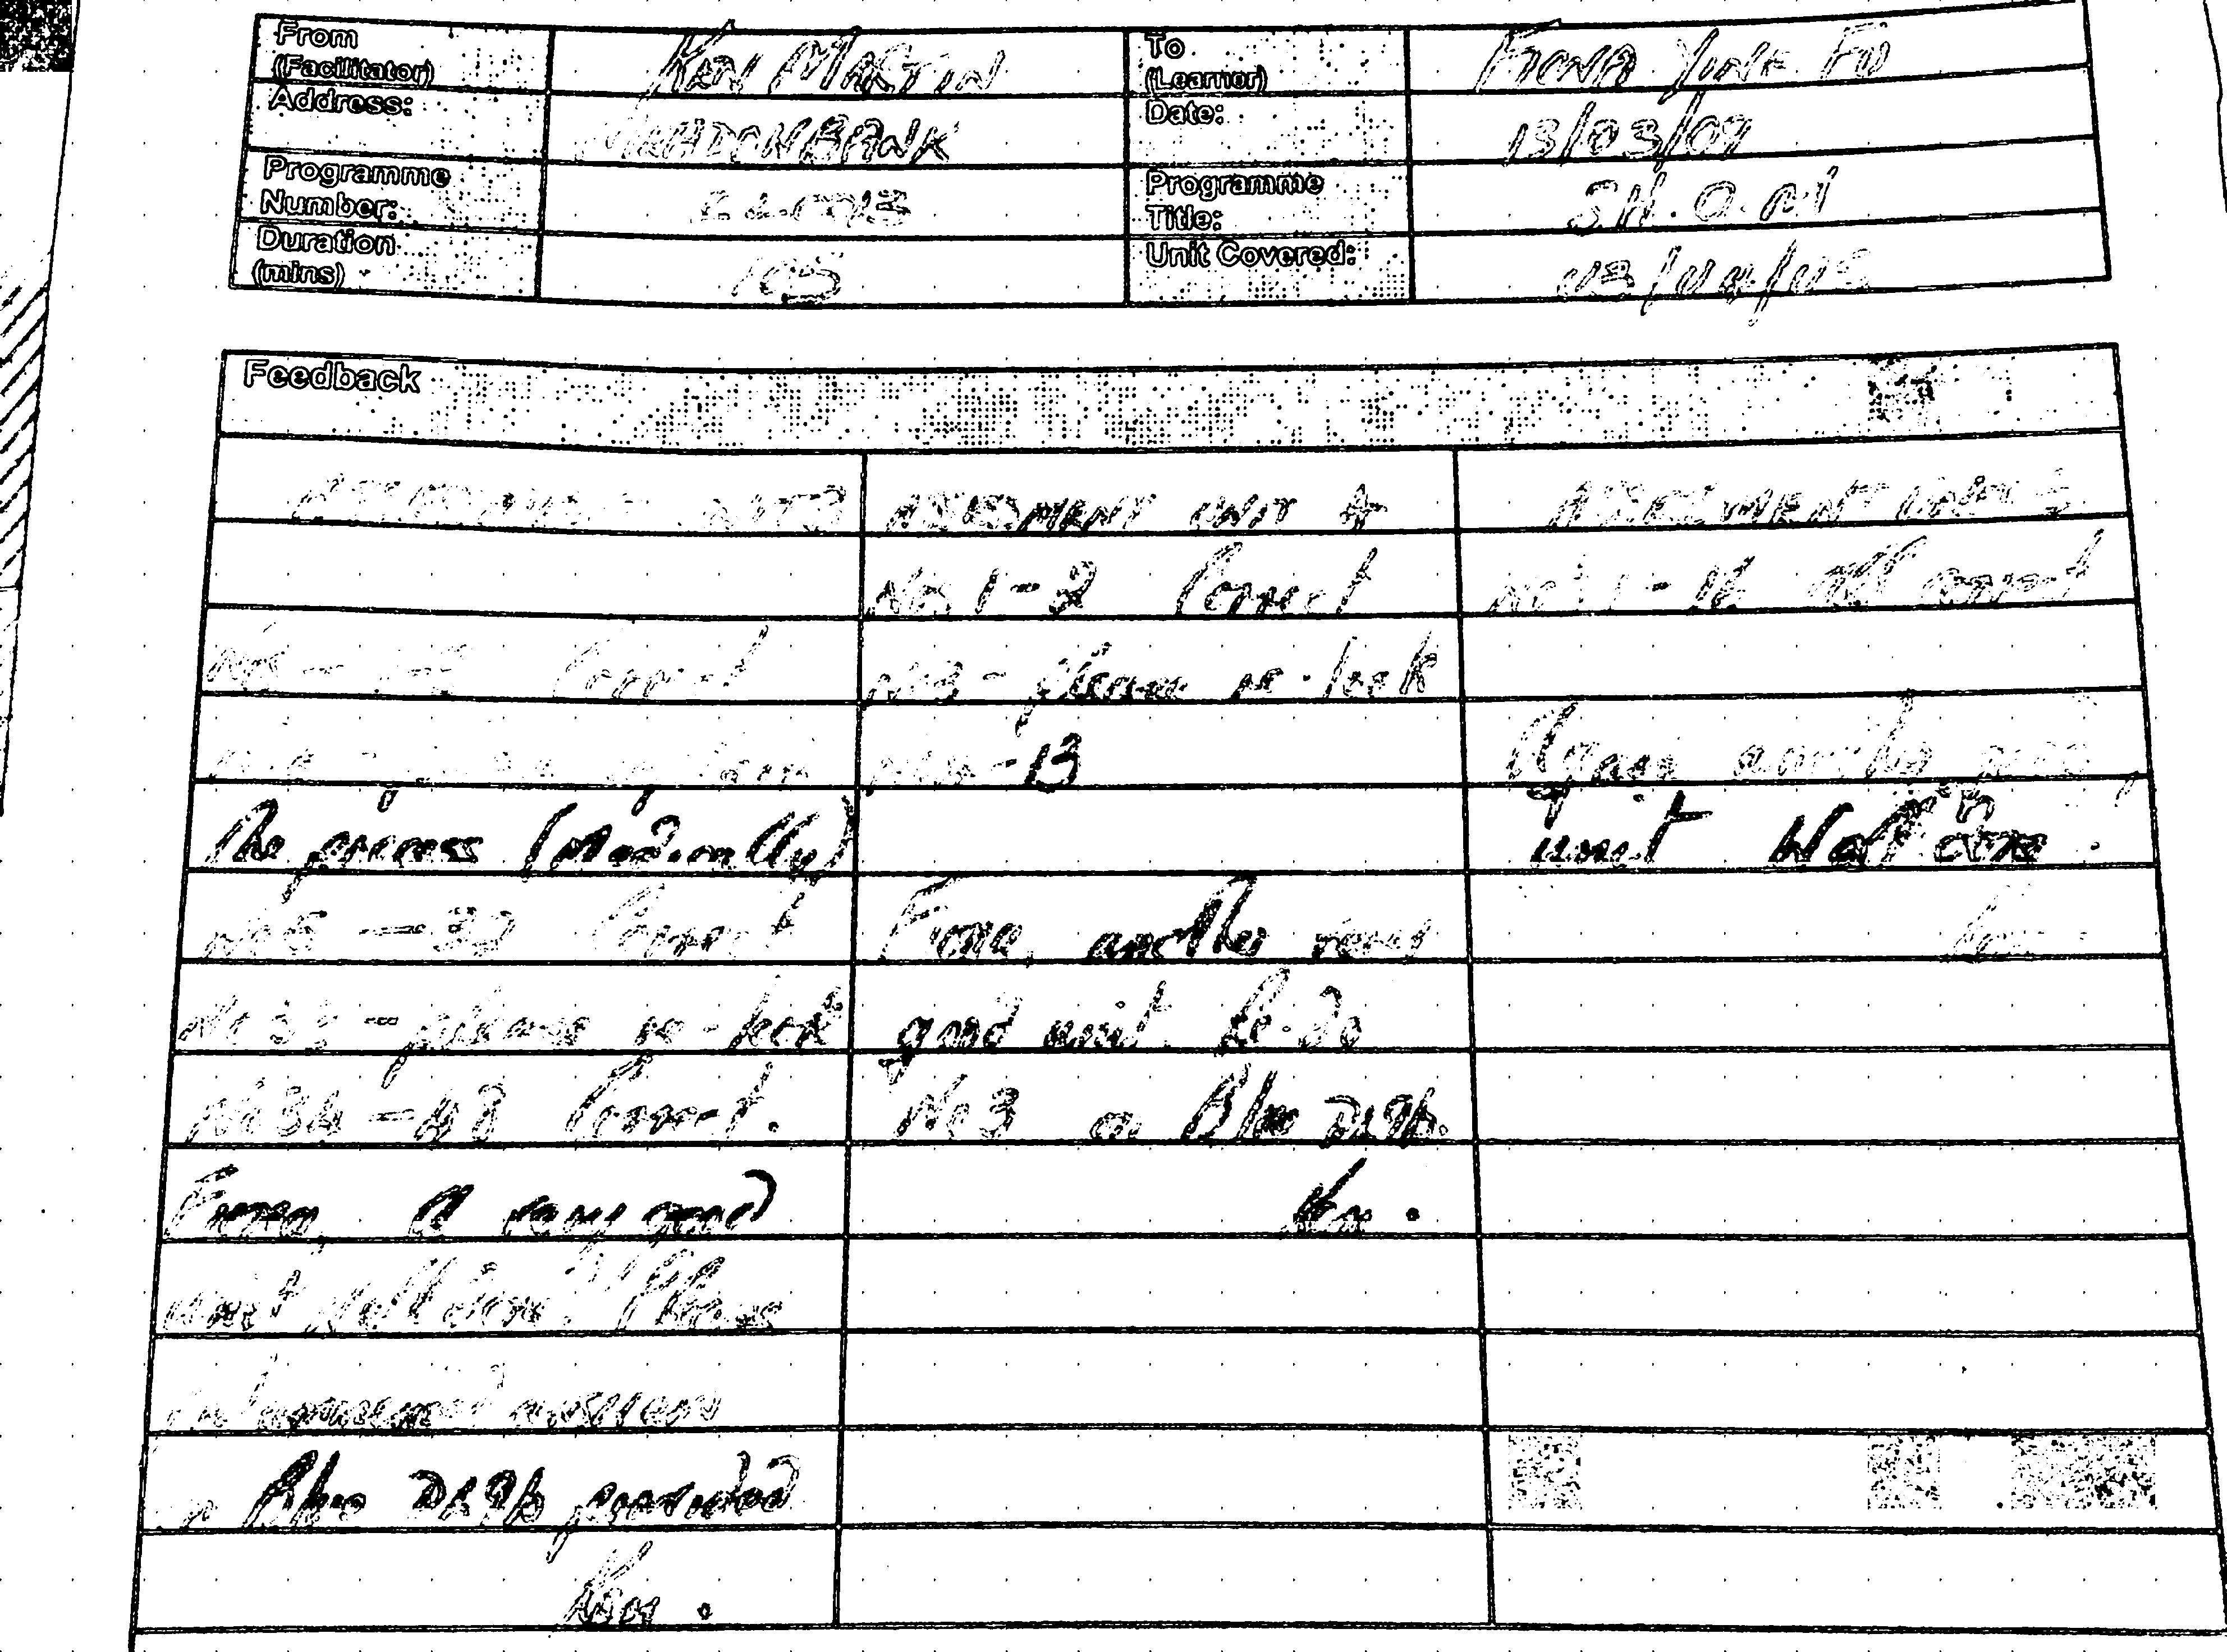 From (Facilitator) KEN MARTIN To (Learner) FIONA
Address: MEADOWBANK Date: 13/03/09
Programme Number: Programme Title: S.H.O.M
Duration (mins) 105 Unit Covered: U3/U4/U5
Feedback
ASSESSMENT UNIT 4 ASSESSMENT UNIT 5
No 1-2 Correct No 1-12 All correct
Correct No 3 - please re-look
13 Again another good
the process (Medically) unit Well done.
No 5 - 32 Correct Fiona, another very Ken
No 33 - please re-look good unit. Re-do
No 34 - 48 Correct. No 3 on Blue D19b.
Fiona, A very good Ken.
unit well done. Please
answers
on Blue D19b provided
Ken.